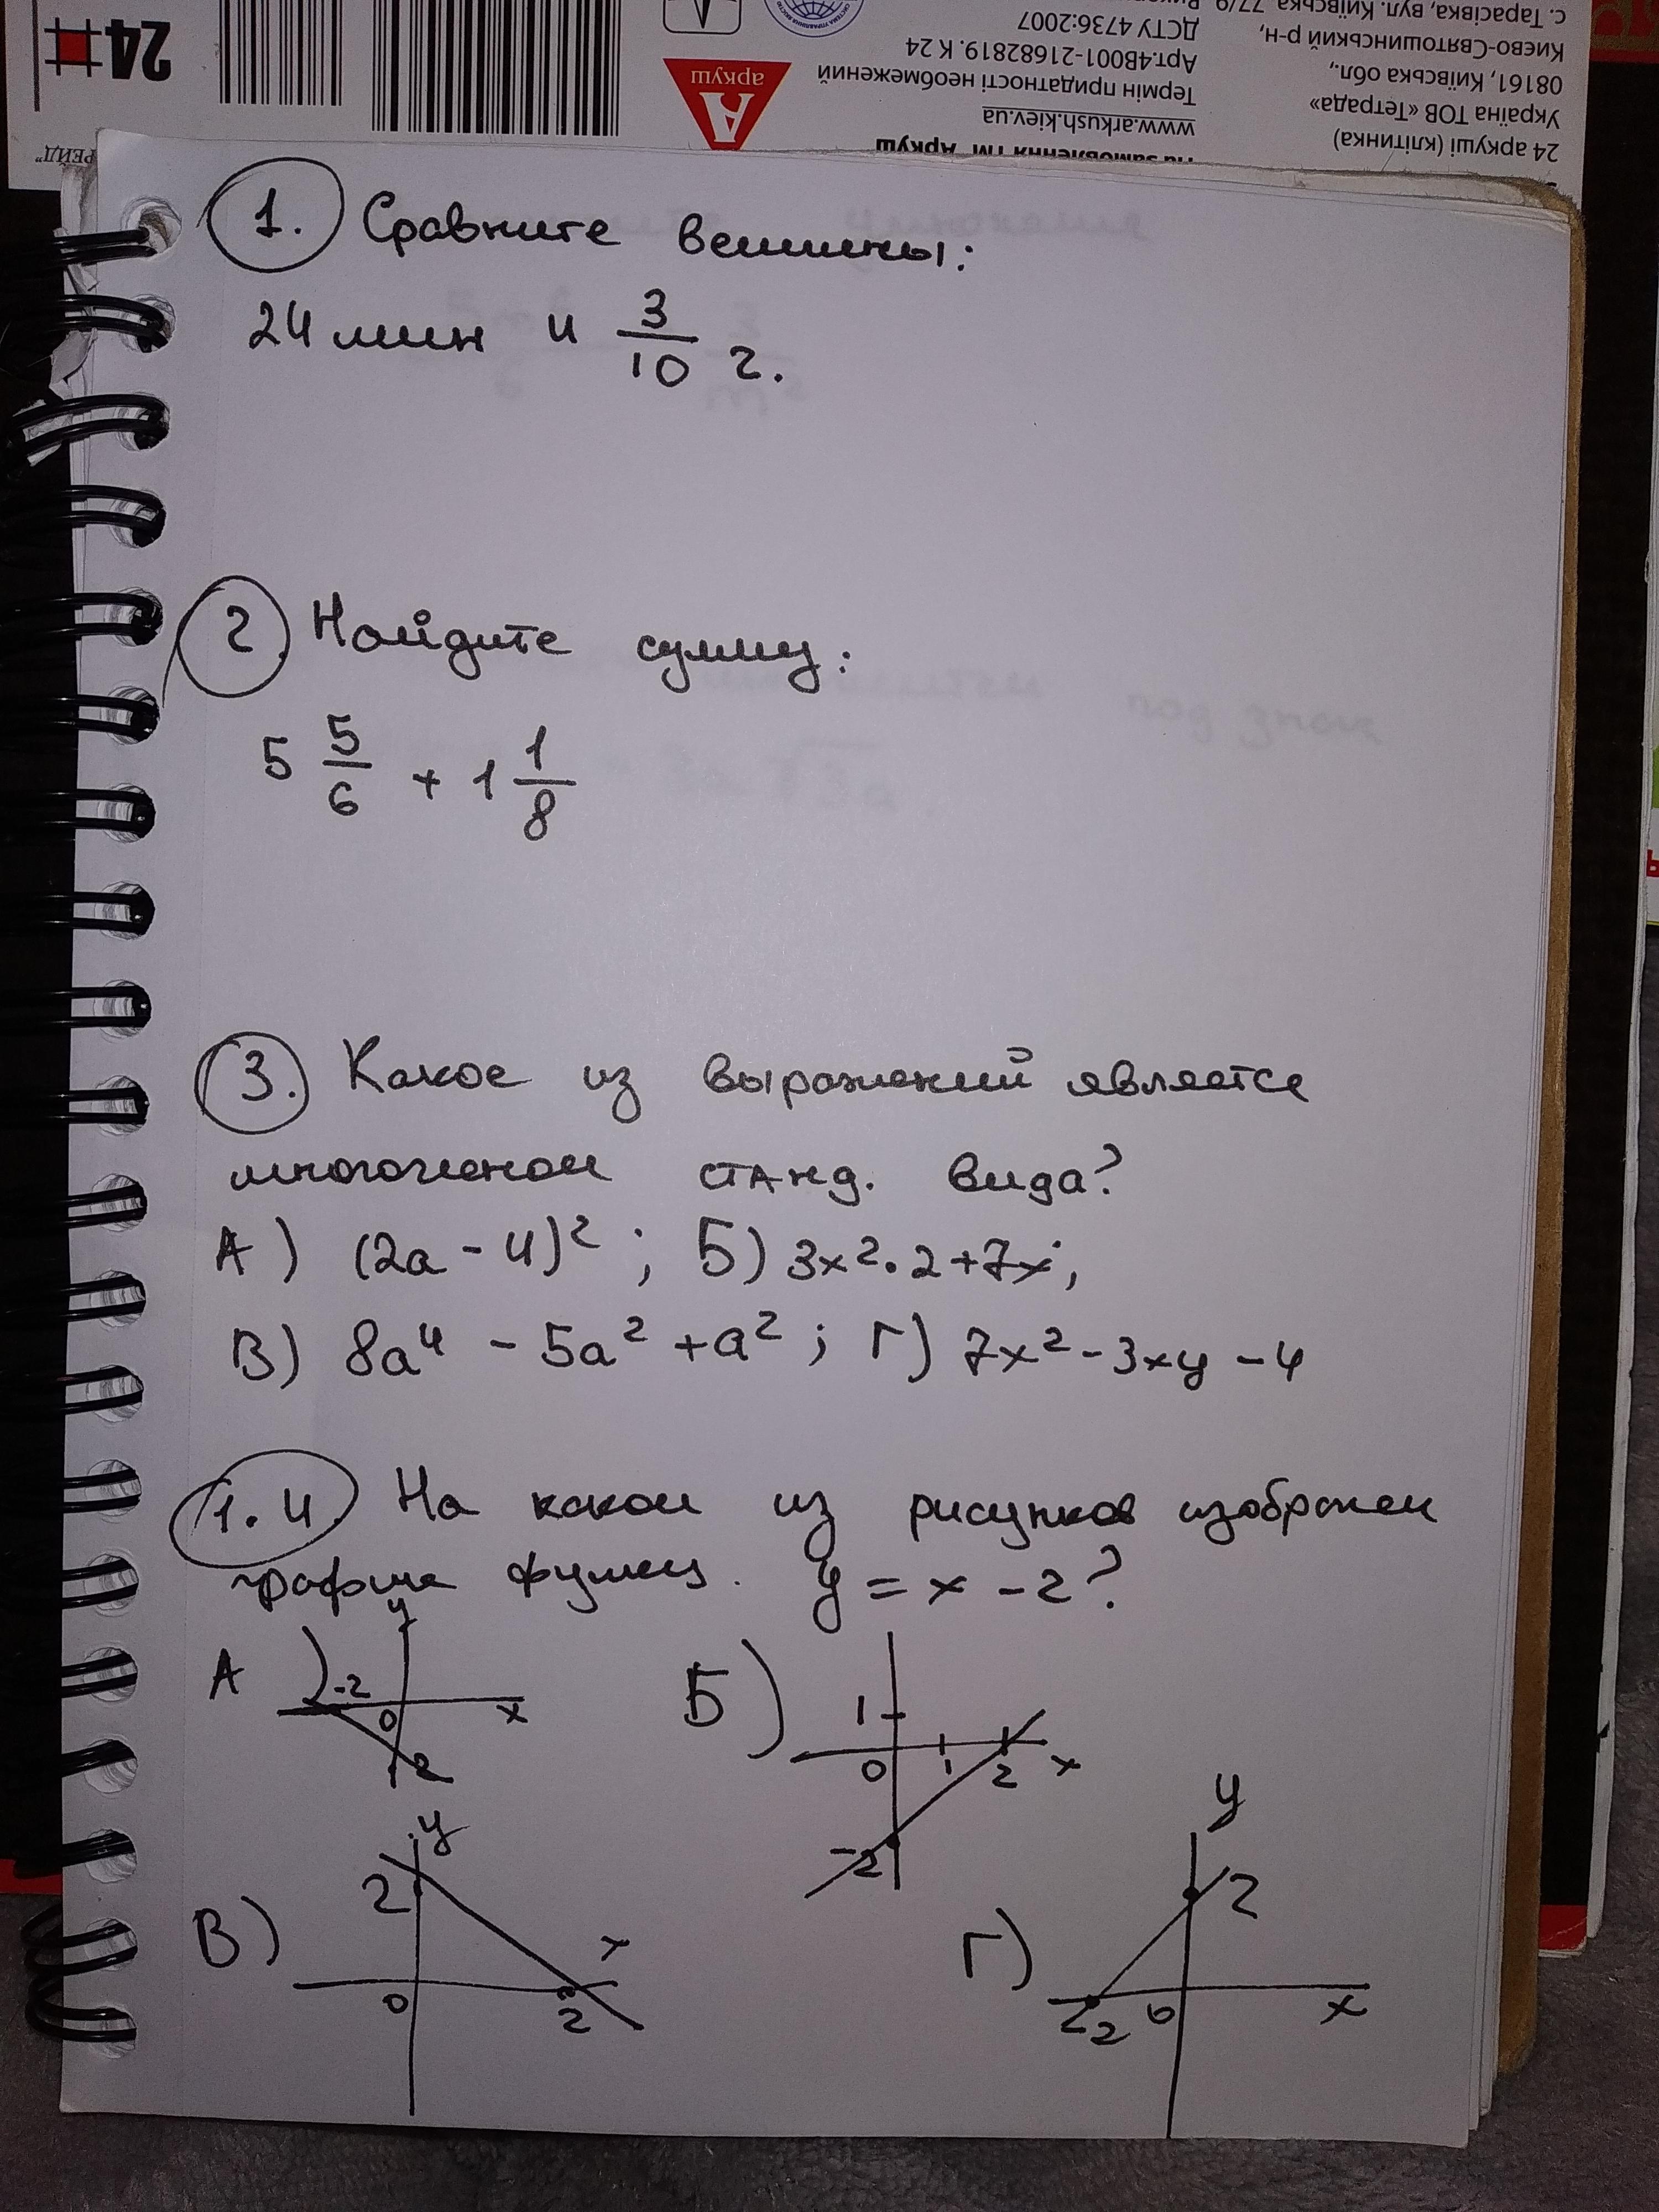 24
РЕЙД"
аркуш
На замовлення ТМ "Аркуш
www.arkush.kiev.ua
Термін придатності необмежений
Арт.4В001-21682819. К 24
ДСТУ 4736:2007
24 аркуші (клітинка)
Україна ТОВ «Тетрада»
08161, Київська обл.,
Києво-Святошинський р-н,
с. Тарасівка, вул. Київська
1. Сравните величины:
24 мин и 3/10 г.
2. Найдите сумму:
5 5/6 + 1 1/8
3. Какое из выражений является
многочленом станд. вида?
А) (2a - 4)²; Б) 3x²·2+7x;
В) 8a⁴ - 5a² + a²; Г) 7x² - 3xy - 4
1.4. На каком из рисунков изображен
график функц. y = x - 2?
А) y -2 0 x -2
Б) 1 0 1 2 x -2
В) y 2 0 2 x
Г) y 2 -2 0 x